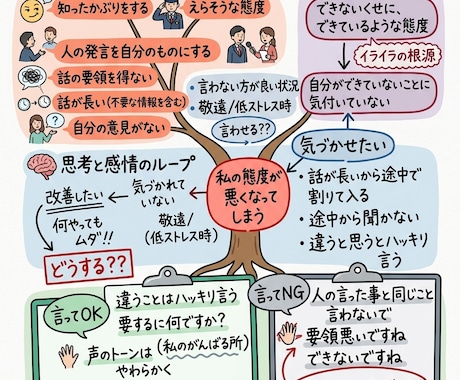 知ったかぶりをする
えらそうな態度
人の発言を自分のものにする
話の要領を得ない
話が長い(不要な情報を含む)
自分の意見がない
・言わない方が良い状況
・敬遠/低ストレス時
言わせる??
できないくせに、
できているような態度
イライラの根源
自分ができていないことに
気付いていない
気づかせたい
・話が長いから途中で
割りて入る
・途中から聞かない
・違うと思うとハッキリ
言う
私の態度が
悪くなって
しまう
思考と感情のループ
改善したい
気づかれて
いない
敬遠/
(低ストレス時)
何やっても
ムダ!!
どうする??
言ってOK
違うことはハッキリ言う
要するに何ですか?
声のトーンは(私のがんばる所)
やわらかく
言ってNG
人の言った事と同じこと
言わないで
要領悪いですね
できないですね